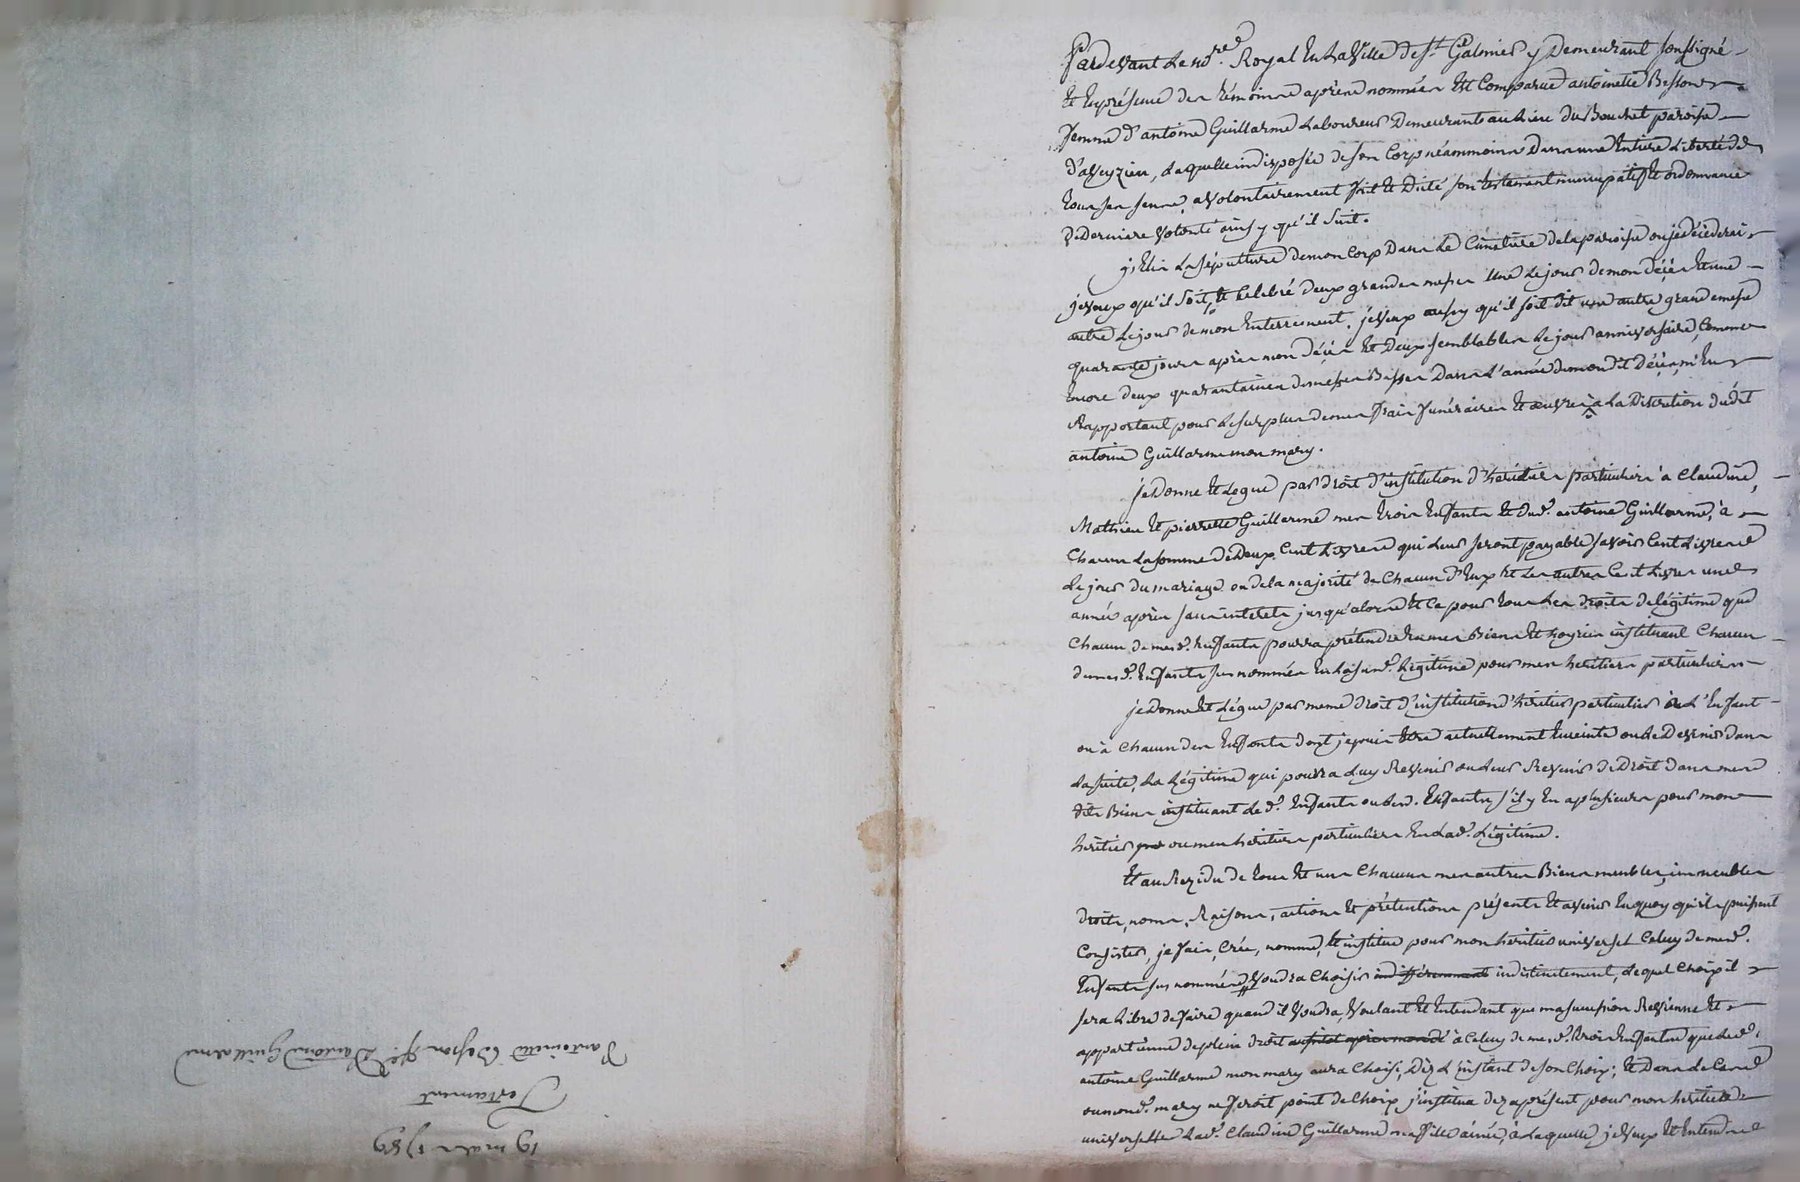 Pardevant le no.re Royal en la ville de St. Galmier y demeurant soussigné
et en présence des témoins après nommés est comparue antoinette Besson
femme d'antoine Guillarme laboureur demeurante au lieu du Bouchet paroisse
d'aveyzieu, laquelle indisposée de son corp néammoins dans une entiere liberté de
tous ses sens, a volontairement fait et dicté son testament nuncupatif et ordonnance
de derniere volonté ainsy qu'il suit.
j'elis la sépulture de mon corp dans le cimetiere de la paroisse ou je décéderai
je veux qu'il soit celebré deux grandes messes une le jour de mon décés et une
autre le jour de mon enterrement, je veux aussy qu'il soit dit une autre grande messe
quarante jours après mon décés et deux semblables le jour anniversaire, comme
encore deux quarantaines de messes Basses dans l'année de mondit décés, m'en
Rapportant pour le surplus de mes frais funéraires et œuvres à la discretion dudit
antoine Guillarme mon mary.
je donne et legue par droit d'institution d'heritiers particuliers à claudine,
Mathieu et pierrette Guillarme mes trois enfants et dud. antoine Guillarme, à
chacun la somme de deux cent livres qui leur seront payable savoir cent livres
le jour du mariage ou de la majorité de chacun d'eux et les autres cent livres une
année après sans interets jusqu'alors et ce pour tous les droits de légitime que
chacun de mesd. enfants pourra prétendre en mes Biens et hoyries instituant chacun
de mesd. enfants sus nommés en lasusd. légitime pour mes heritiers particuliers
je donne et légue par meme droit d'institution d'héritier particulier à l'enfant
ou à chacun des enfants dont je puis être actuellement enceinte ou le devenir dans
la suite, la légitime qui pourra luy Revenir ou leur Revenir de droit dans mes
dits Biens instituant led. enfant ou lesd. enfants s'il y en a plusieurs pour mon
héritier ou mes heritiers particuliers en lad. légitime.
Et au Rezidu de tous et uns chacuns mes autres Biens meubles, immeubles
droits, noms, Raisons, actions et prétentions présents et avenir en quoy qu'ils puissent
consister, je fais, crée, nomme, et institue pour mon héritier universel celuy de mesd.
enfants sus nommés voudra choisir indifféremment indistinctement, lequel choix il
sera libre de faire quand il voudra, voulant et entendant que ma succession Revienne et
appartienne de plein droit aussitot après mond. à celuy de mesd. trois enfants que led.
antoine Guillarme mon mary aura choisi, dèz l'instant de son choix; et dans le cas
ou mond. mary ne feroit point de choix j'institue dez aprésent pour mon heritiere
universelle lad. claudine Guillarme ma fille ainée, à laquelle je veux et entend
19 mars 1789
Testament
d'antoinette Besson fe. d'antoine Guillarme